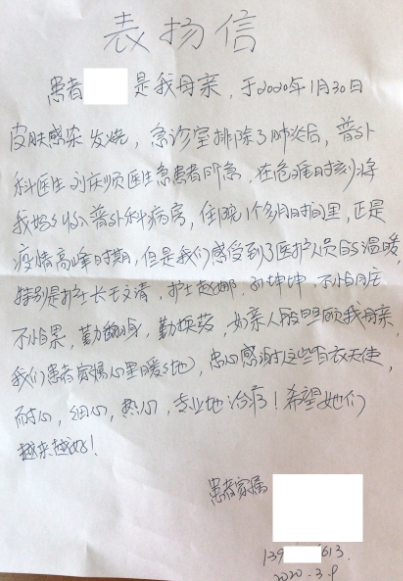 表扬信
患者 是我母亲，于2020年1月30日
皮肤感染发烧，急诊室排除了肺炎后，普外
科医生刘庆顺医生急患者所急，在危难时刻将
我妈妈收入普外科病房，住院1个多月时间里，正是
疫情高峰时期，但是我们感受到了医护人员的温暖，
特别是护士长王文清，护士赵娜，孙坤坤，不怕脏
不怕累，勤翻身，勤换药，如亲人般照顾我母亲，
我们患者家属心里暖暖地，衷心感谢这些白衣天使，
耐心，细心，热心，专业地治疗！希望她们
越来越好！
患者家属
139 613
2020.3.9